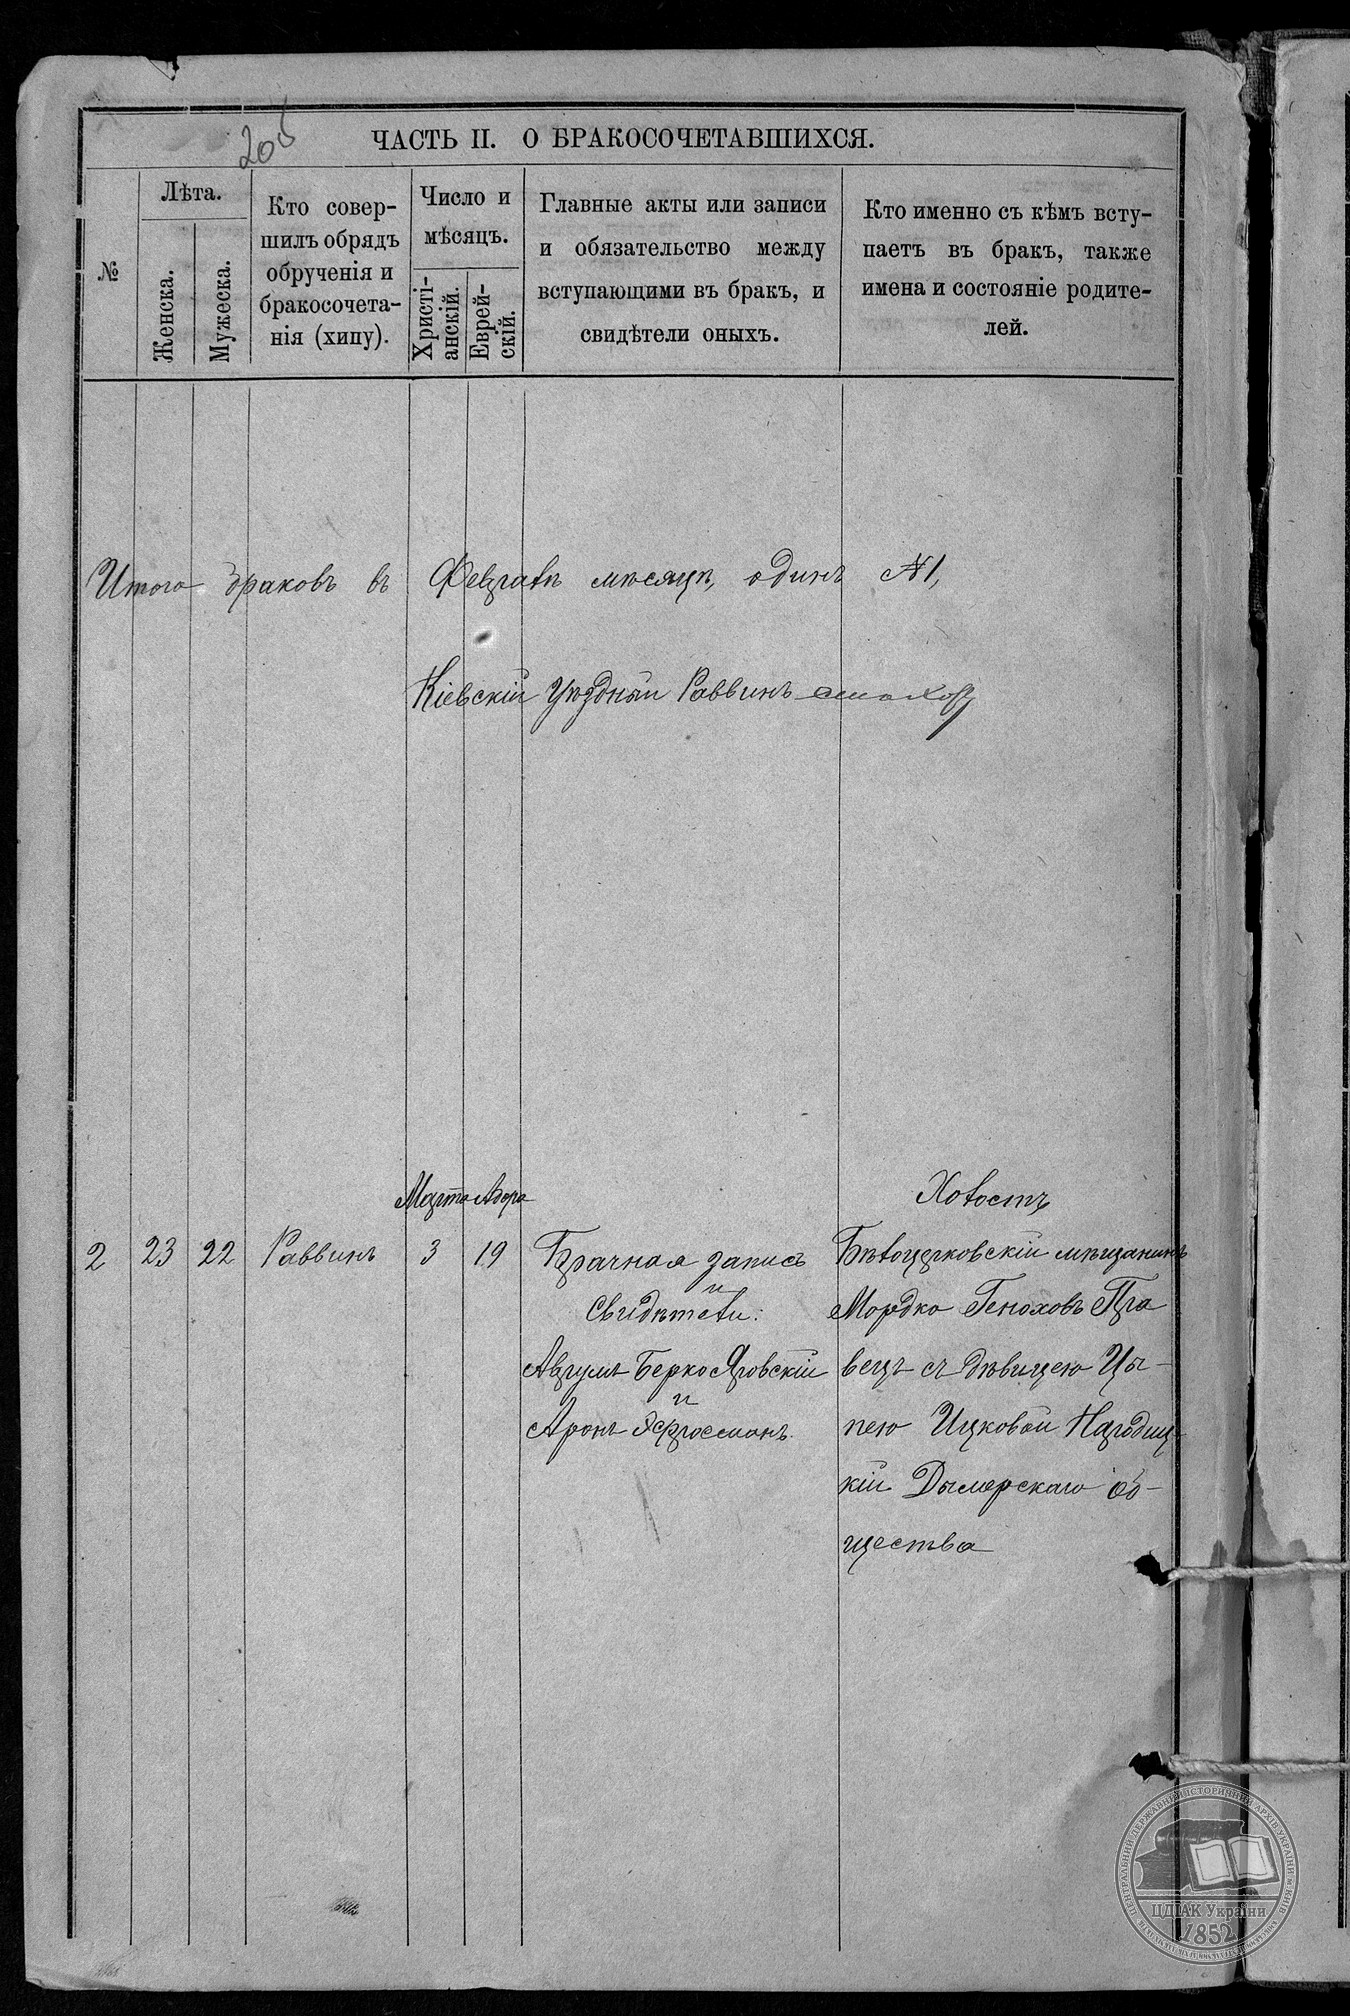 205
ЧАСТЬ II. О БРАКОСОЧЕТАВШИХСЯ.
№
Лѣта.
Женска.
Мужеска.
Кто совер-
шилъ обрядъ
обрученія и
бракосочета-
нія (хипу).
Число и
мѣсяцъ.
Христі-
анскій.
Еврей-
скій.
Главные акты или записи
и обязательство между
вступающими въ бракъ, и
свидѣтели оныхъ.
Кто именно съ кѣмъ всту-
паетъ въ бракъ, также
имена и состояніе родите-
лей.
Итого браковъ въ Февралѣ мѣсяцѣ, одинъ №1,
Кіевскій Уѣздный Раввинъ
Марта Адора
Холостъ
2 23 22 Раввинъ 3 19
Брачная запись
и
Свидѣтели:
Аврумъ Берко Яровскій
и
Аронъ Эфросманъ.
Бѣлоцерковскій мѣщанинъ
Мордко Геноховъ Пра
вецъ съ дѣвицею Цы-
пею Ицковой Народиц-
кій Дымерскаго об-
щества
ЦЕНТРАЛЬНИЙ ДЕРЖАВНИЙ ІСТОРИЧНИЙ АРХІВ УКРАЇНИ, м. КИЇВ
ЦДІАК України
1852